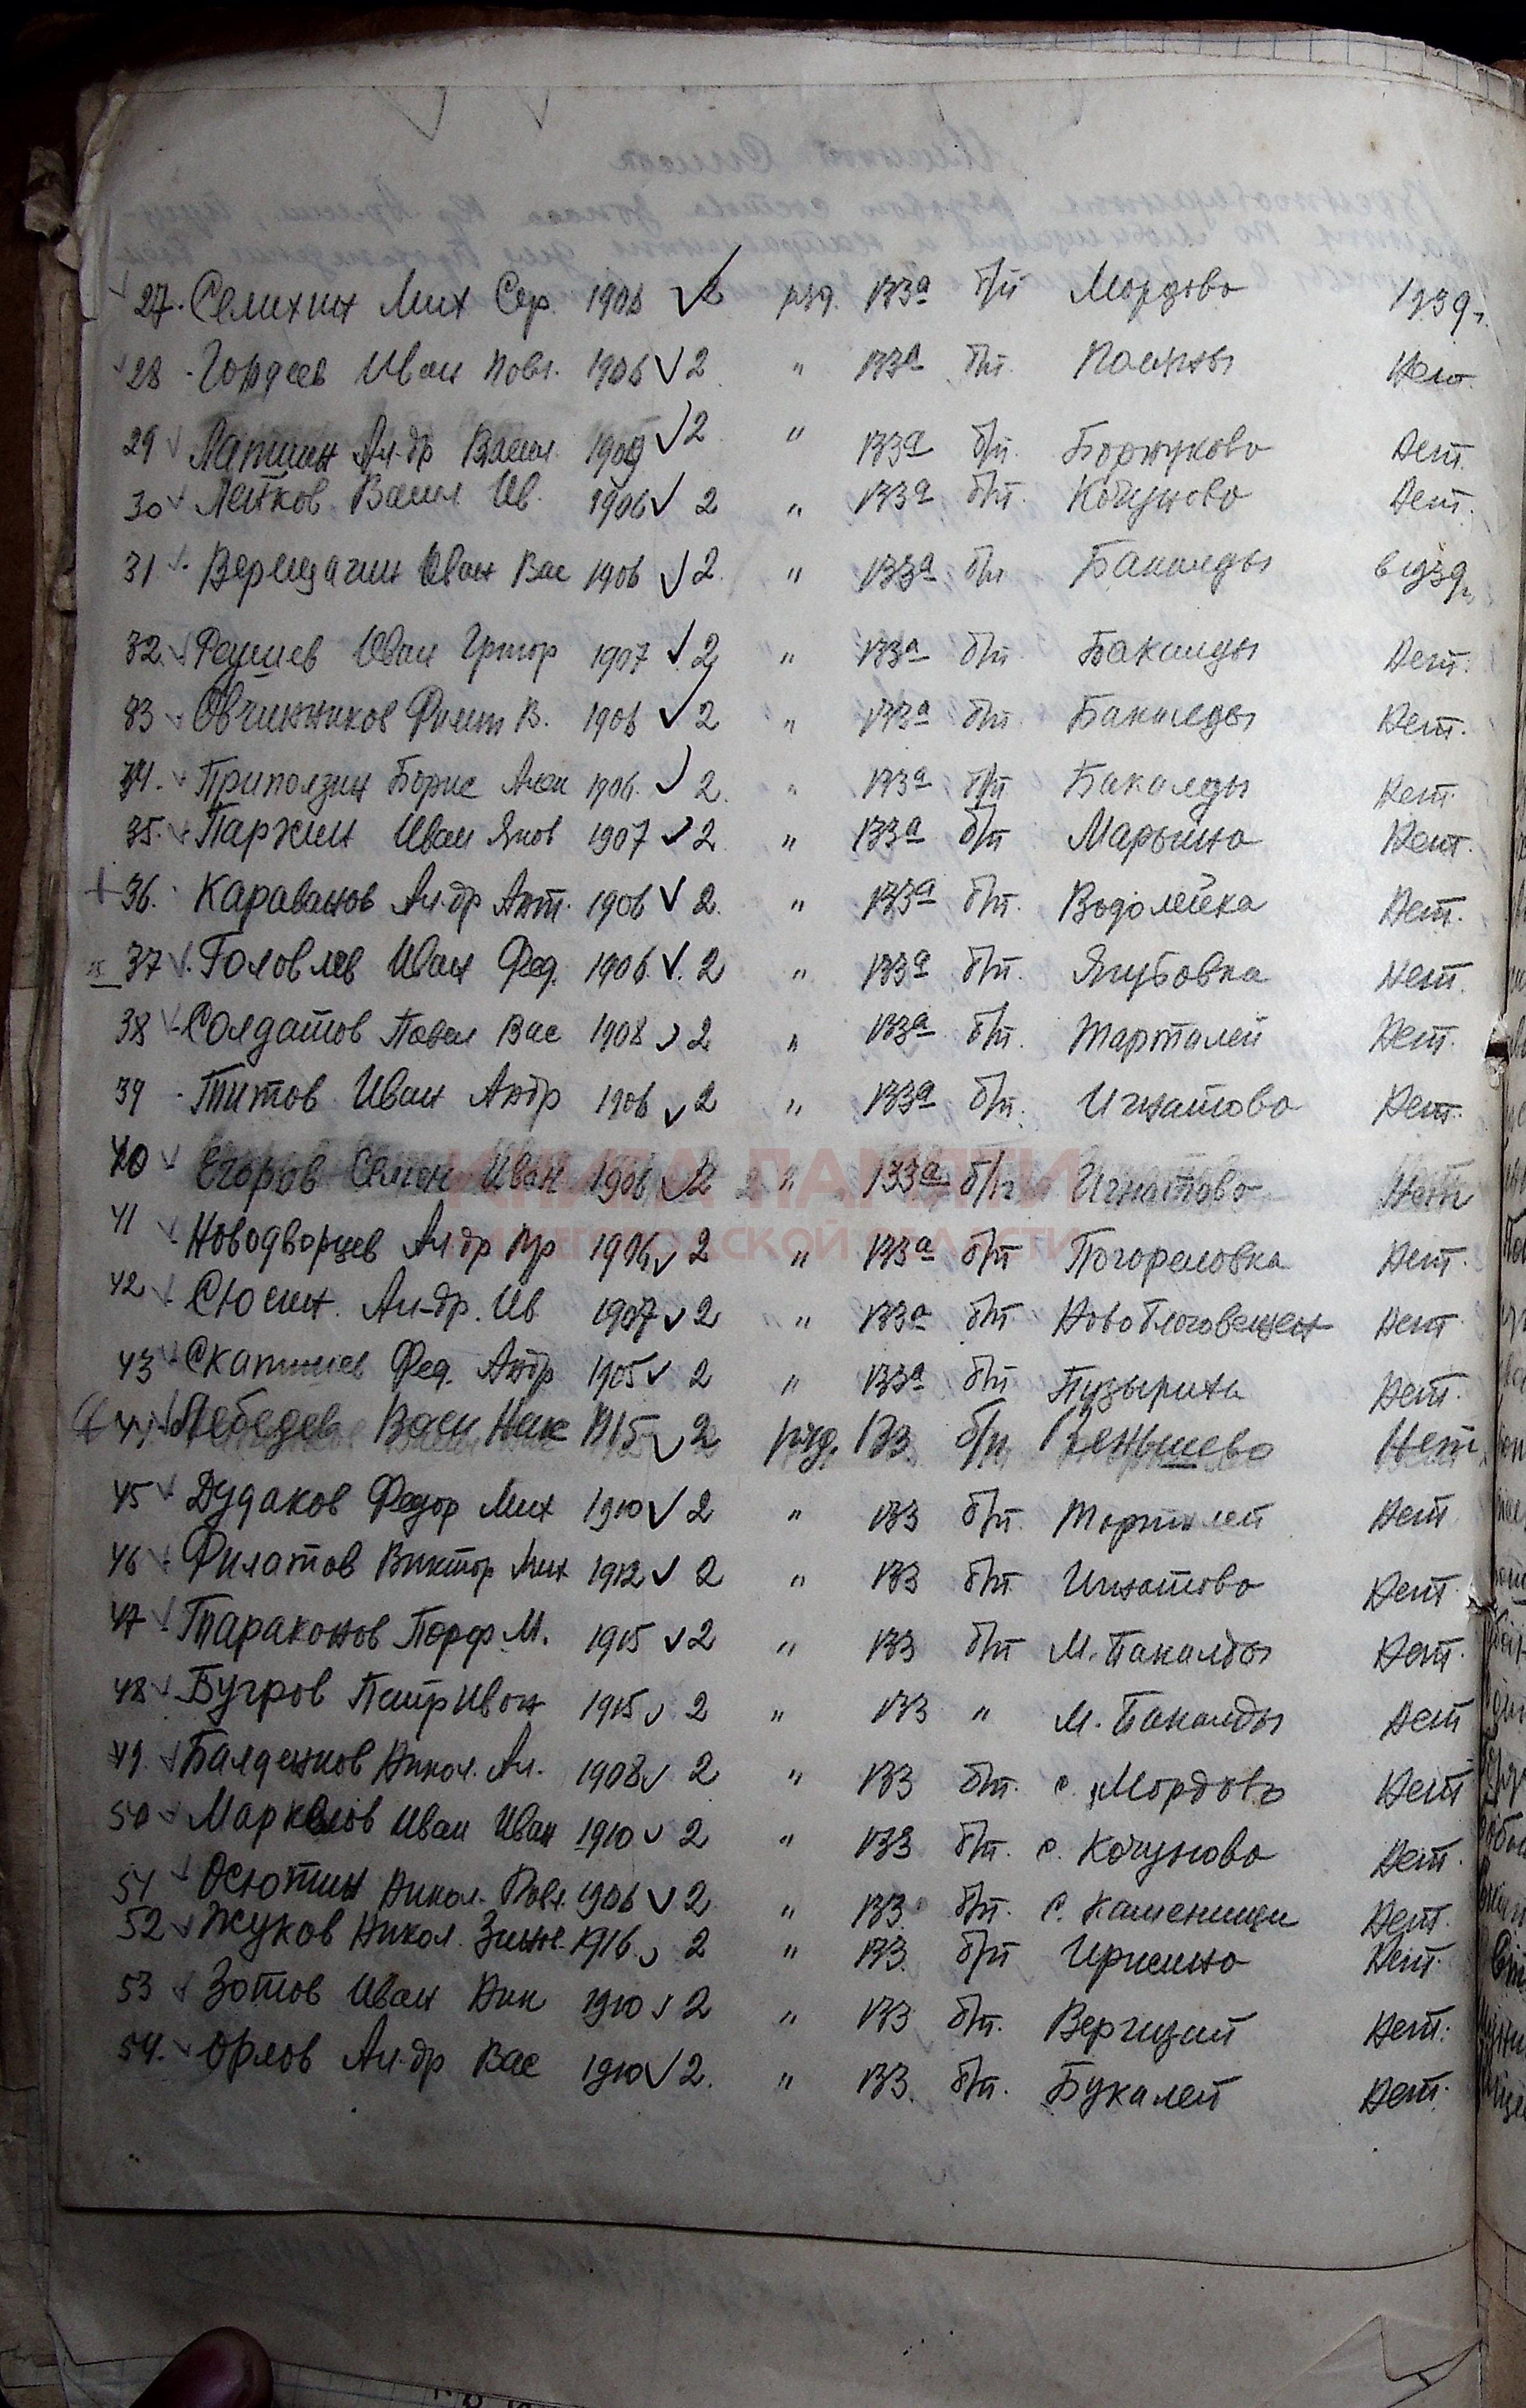 27. Семихин Мих Сер. 1908 2 ряд. 133а б/п Мордово 1939г.
28 Гордеев Иван Павл. 1906 2 " 133а б/п. Нет.
29 Лапшин Ал-др Васил 1909 2 " 133а б/п. Боржуково Нет.
30 Летков Васил Ив. 1906 2 " 133а б/п. Кочуново Нет.
31 Верещагин Иван Вас 1906 2. " 133а б/п Бакалды
32. Иван Григор 1907 2 " 133а б/п Бакалды Нет.
33 Овчинников Филип В. 1906 2 " 133а б/п Бакалды Нет.
34. Приползин Борис 1906. 2. " 133а б/п Бакалды Нет.
35. Паржин Иван Яков 1907 2 " 133а б/п Марьино Нет.
36. Караванов Ал-др Ант. 1906 2. " 133а б/п. Водолейка Нет.
37 Головлев Иван Фед. 1906. 2 " 133а б/п. Якубовка Нет.
38 Солдатов Павел Вас 1908 2 " 133а б/п. Тарталей Нет.
39 Титов Иван Андр 1906 2 " 133а б/п. Игнатово Нет.
40 Егоров Семен Иван 1906 2 " 133а б/п Игнатово Нет
41 Новодворцев Ал-др Гр 1906 2 " 133а б/п Погореловка Нет.
42 Сюсин. Ал-др. Ив 1907 2 " 133а б/п Новоблаговещен Нет
43 Фед. Андр 1905 2 " 133а б/п Пузыриха Нет.
44 Лебедев Васи Ник 1915 2 ряд. 133 б/п. Веньшево Нет.
45 Дудаков Федор Мих 1910 2 " 133 б/п. Тарталей Нет
46 Филатов Виктор Мих 1912 2 " 133 б/п. Игнатово Нет.
47 Тараконов Порф. М. 1915 2 " 133 б/п М. Бакалды Нет.
48 Бугров Петр Иван 1915 2 " 133 " М. Бакалды Нет
49. Балденков Никол. Ал. 1908 2 " 133 б/п. с. Мордово Нет
50 Маркелов Иван Иван 1910 2 " 133 б/п. с. Кочуново Нет.
51 Осютин Никол. Павл. 1906 2. " 133 б/п. с. Каменищи Нет.
52 Жуков Никол. 1916. 2 " 133. б/п Ирисино Нет.
53 Зотов Иван Ник 1910 2 " 133 б/п. Вергизай Нет.
54. Орлов Ал-др Вас 1910 2. " 133. б/п. Букалей Нет.
КНИГА ПАМЯТИ
НИЖЕГОРОДСКОЙ ОБЛАСТИ